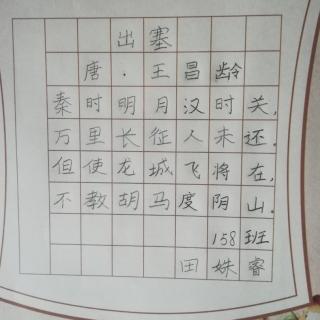 出塞
唐.王昌龄
秦时明月汉时关,
万里长征人未还.
但使龙城飞将在,
不教胡马度阴山.
158班
田姝睿